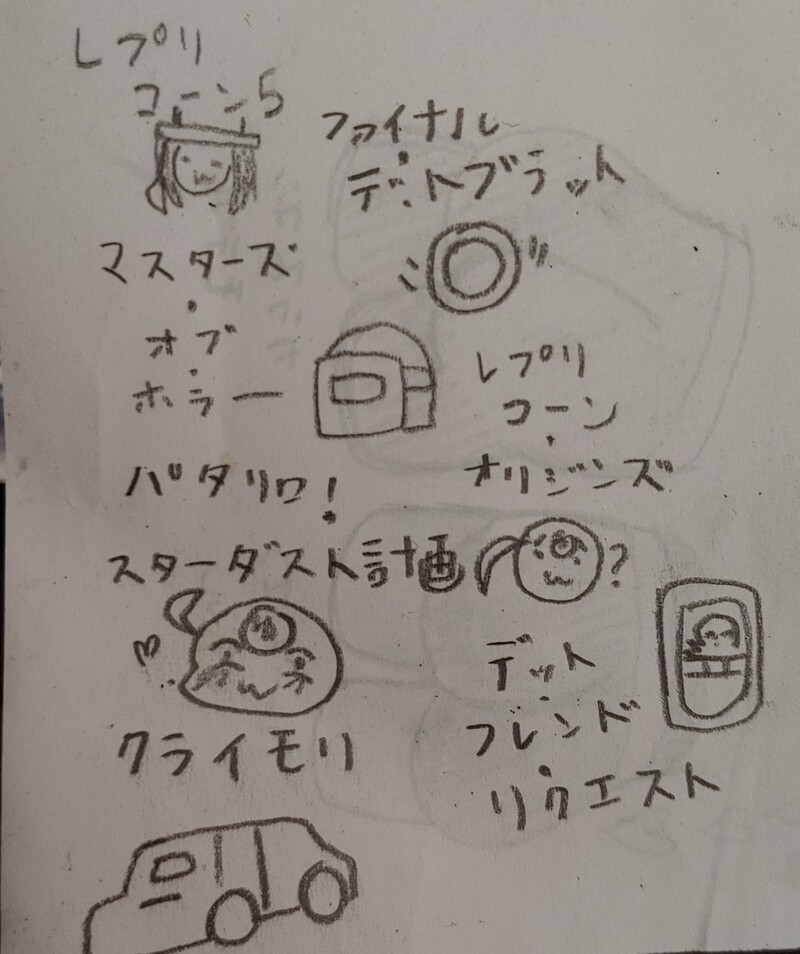 レプリ
コーン5
ファイナル
・
デットブラット
マスターズ
・
オブ
・
ホラー
レプリ
コーン
・
オリジンズ
パタリロ!
スターダスト計画
?
デット
・
フレンド
・
リクエスト
クライモリ